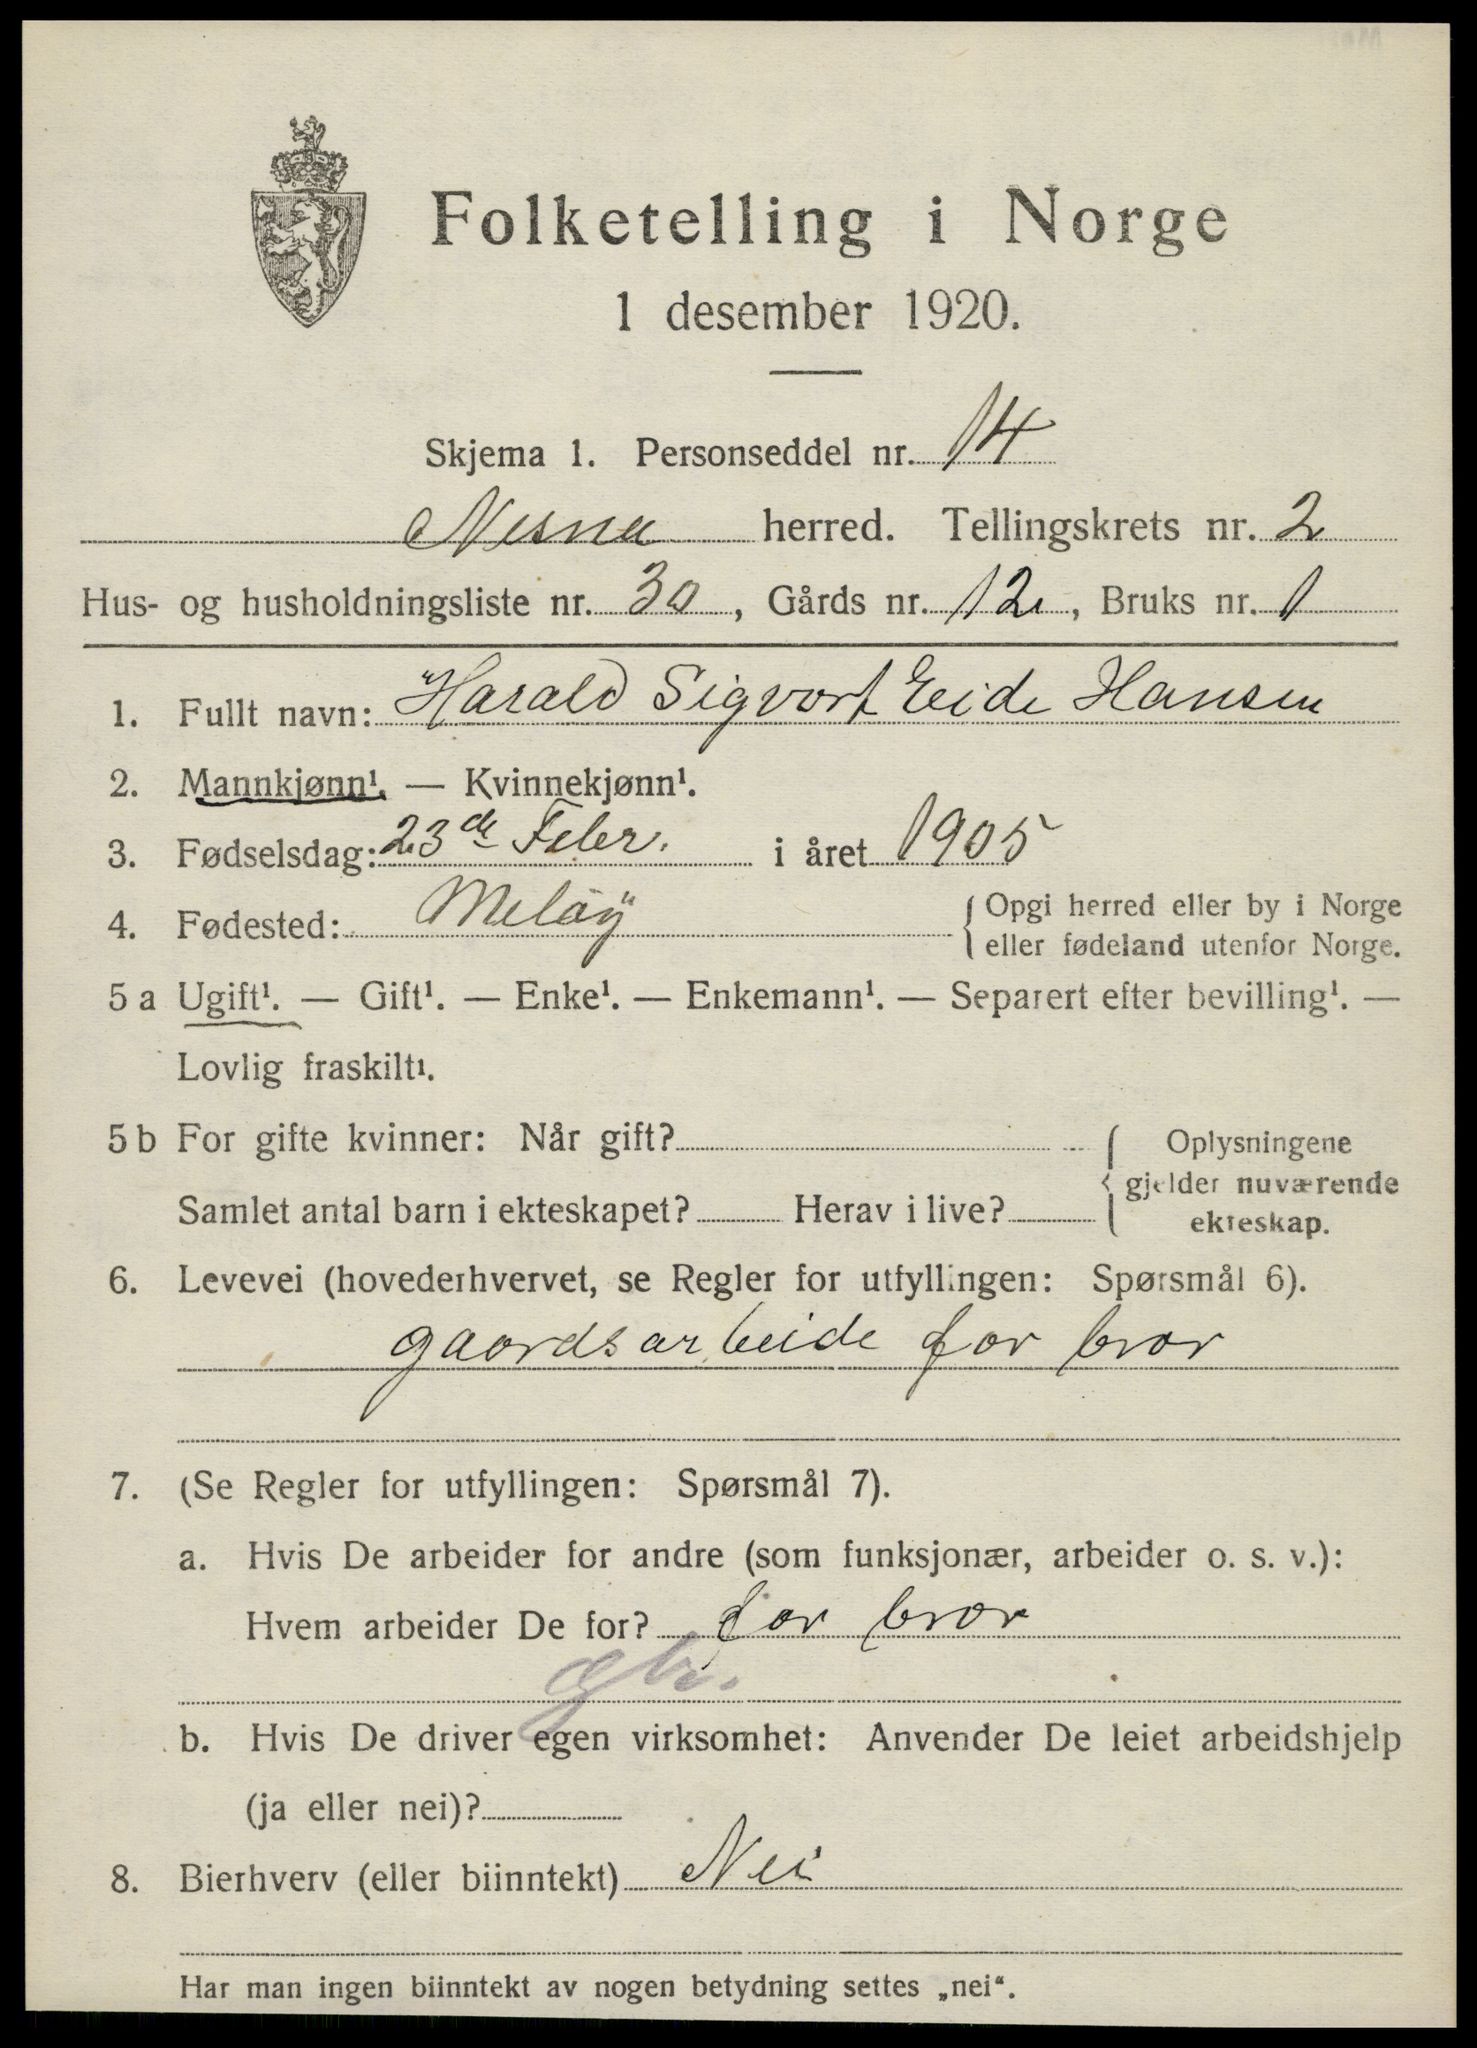 Folketelling i Norge
1 desember 1920.
Skjema 1. Personseddel nr. 14
Nesna herred. Tellingskrets nr. 2
Hus- og husholdningsliste nr. 30, Gårds nr. 12, Bruks nr. 1
1. Fullt navn: Harald Sigvart Eide Hansen
2. Mannkjønn¹. — Kvinnekjønn¹.
3. Fødselsdag: 23de Febr. i året 1905
4. Fødested: Meløy { Opgi herred eller by i Norge
eller fødeland utenfor Norge.
5 a Ugift¹. — Gift¹. — Enke¹. — Enkemann¹. — Separert efter bevilling¹. —
Lovlig fraskilt¹.
5 b For gifte kvinner: Når gift? { Oplysningene
gjelder nuværende
Samlet antal barn i ekteskapet? Herav i live? ekteskap.
6. Levevei (hovederhvervet, se Regler for utfyllingen: Spørsmål 6).
gaardsarbeide for bror
7. (Se Regler for utfyllingen: Spørsmål 7).
a. Hvis De arbeider for andre (som funksjonær, arbeider o. s. v.):
Hvem arbeider De for? for bror
gbr.
b. Hvis De driver egen virksomhet: Anvender De leiet arbeidshjelp
(ja eller nei)?
8. Bierhverv (eller biinntekt) Nei
Har man ingen biinntekt av nogen betydning settes „nei“.